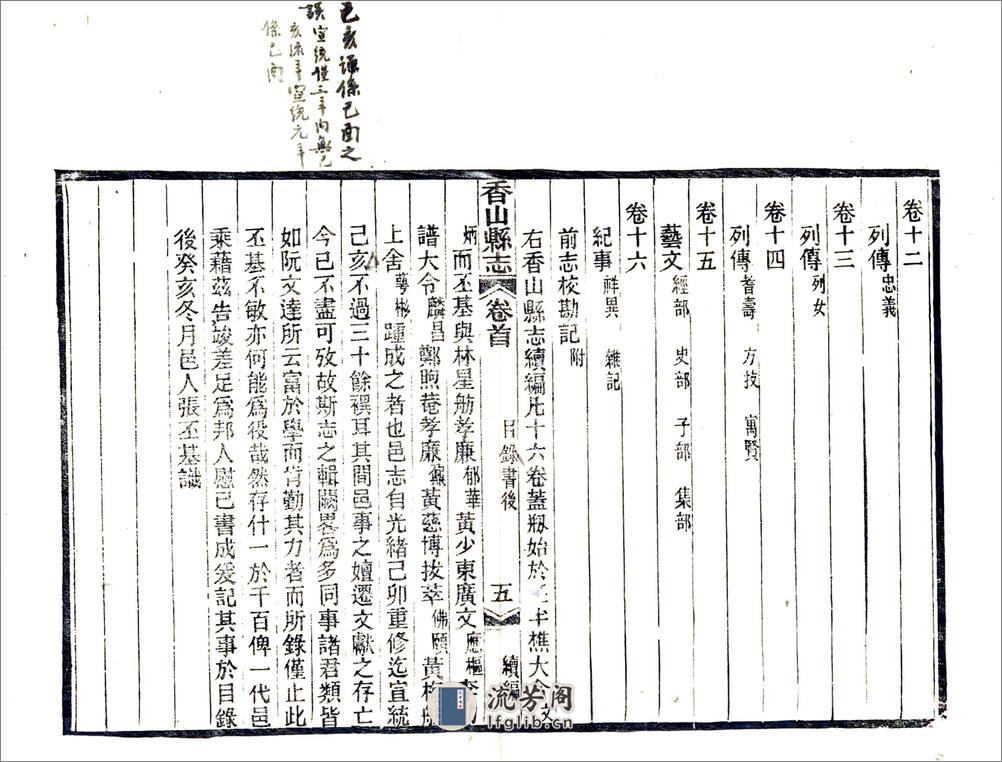 己亥誤係己酉之
誤宣統僅三年內無己
亥流年宣統元年
係己酉
卷十二
列傳 忠義
卷十三
列傳 列女
卷十四
列傳 耆壽 方技 寓賢
卷十五
藝文 經部 史部 子部 集部
卷十六
紀事 祥異 雜記
前志校勘記 附
右香山縣志續編凡十六卷蓋剏始於 樵大令文
香山縣志 卷首 目錄書後 五 續編
炳而丕基與林星舫孝廉郁華黃少東廣文應樞李
譜大令麟昌鄭煦菴孝廉 黃慈博拔萃佛頤黃
上舍蕚彬踵成之者也邑志自光緒己卯重修迄宣統
己亥不過三十餘禩耳其間邑事之嬗遷文獻之存亡
今已不盡可攷故斯志之輯闕畧爲多同事諸君類皆
如阮文達所云富於學而肯勤其力者而所錄僅止此
丕基不敏亦何能爲役哉然存什一於千百俾一代邑
乘藉茲告竣差足爲邦人慰已書成爰記其事於目錄
後癸亥冬月邑人張丕基識
流芳阁
lfglib.cn